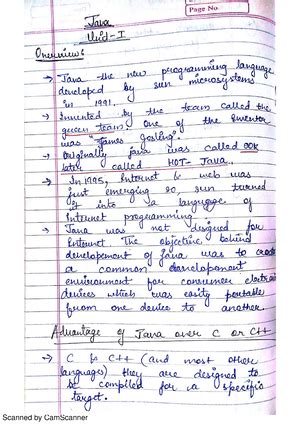 Page No.
Java
Unit-I
Overview:
→ Java the new programming language
developed by sun microsystems
in 1991.
→ Invented by the team called the
green team. One of the inventor
was "James Gosling".
→ Originally java was called OOK
later called HOT-Java.
→ In 1995, Internet & web was
just emerging so, sun turned
it into a language of
Internet programming.
→ Java was not designed for
Internet The objective behind
developement of Java was to create
a common developement
environment for consumer electronic
devices which was easily portable
from one device to another
Advantage of Java over C or C++
→ C & C++ (and most other
languages) they are designed to
be compiled for a specific
target.
Scanned by CamScanner